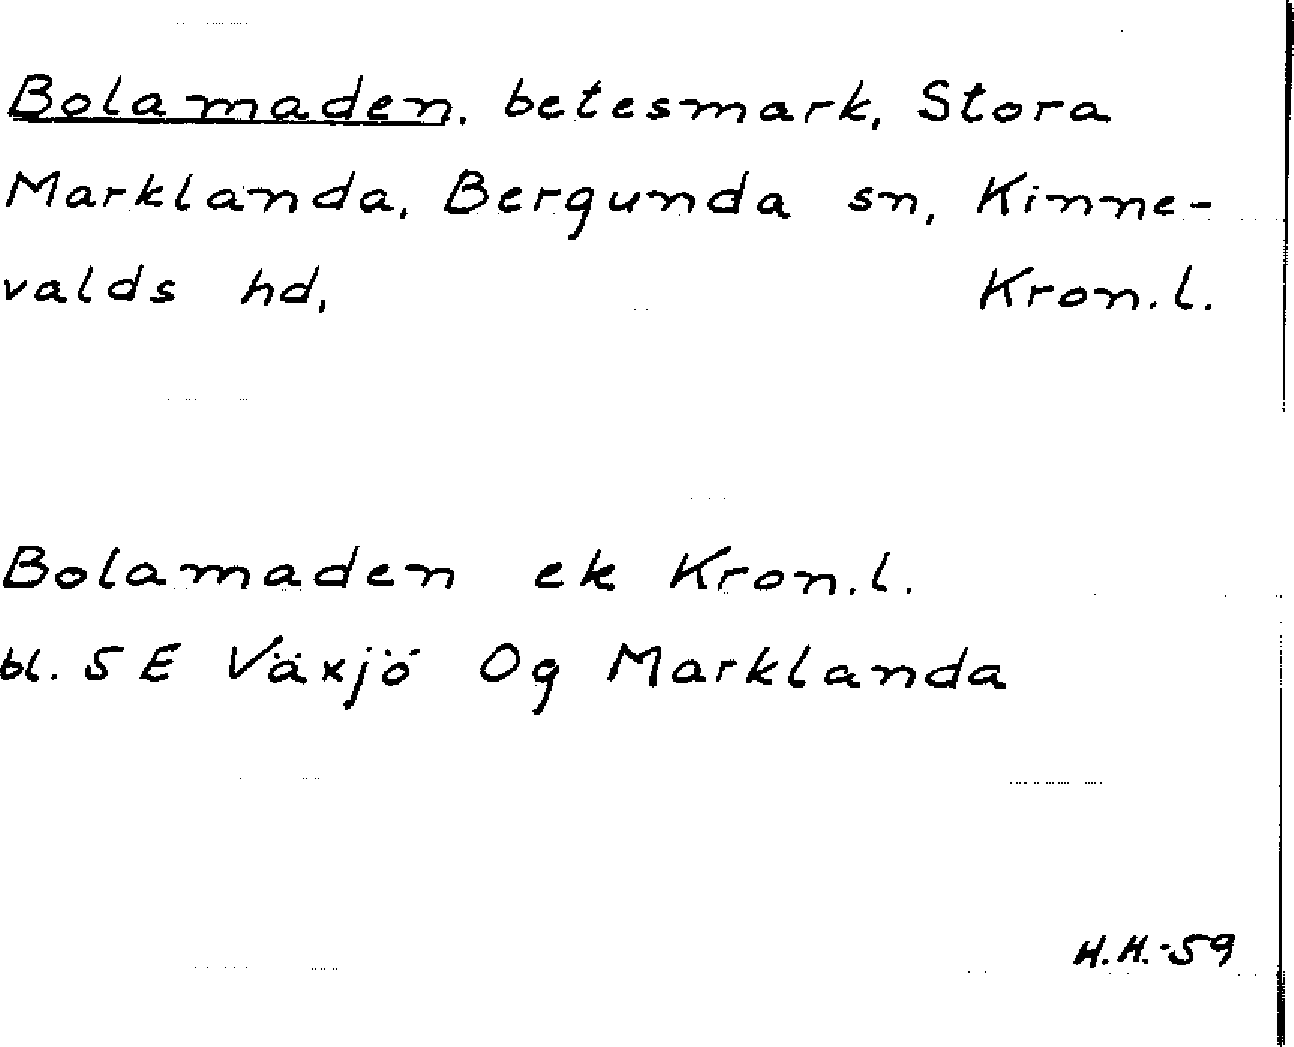 Bolamaden, betesmark, Stora
Marklanda, Bergunda sn, Kinne-
valds hd, Kron.l.
Bolamaden ek Kron.l.
bl. 5 E Växjö Og Marklanda
H.H.-59